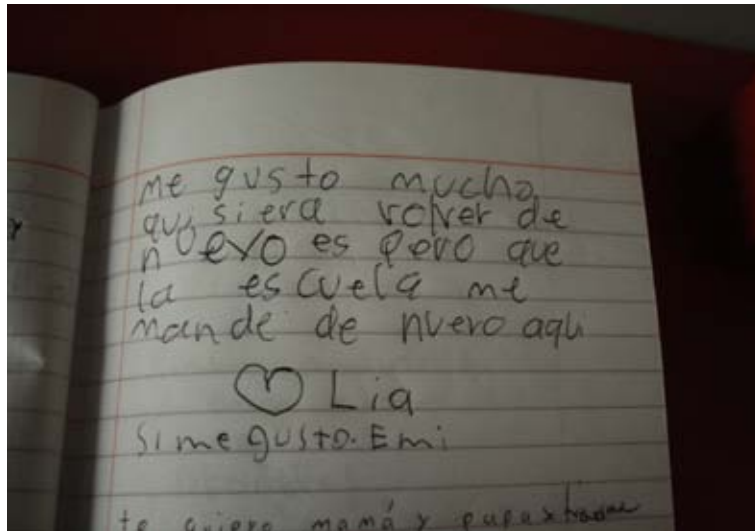 me gusto mucho
quisiera volver de
nuevo espero que
la escuela me
mande de nuevo aqui
♡ Lia
si me gusto. Emi
te quiero mamá y papa x